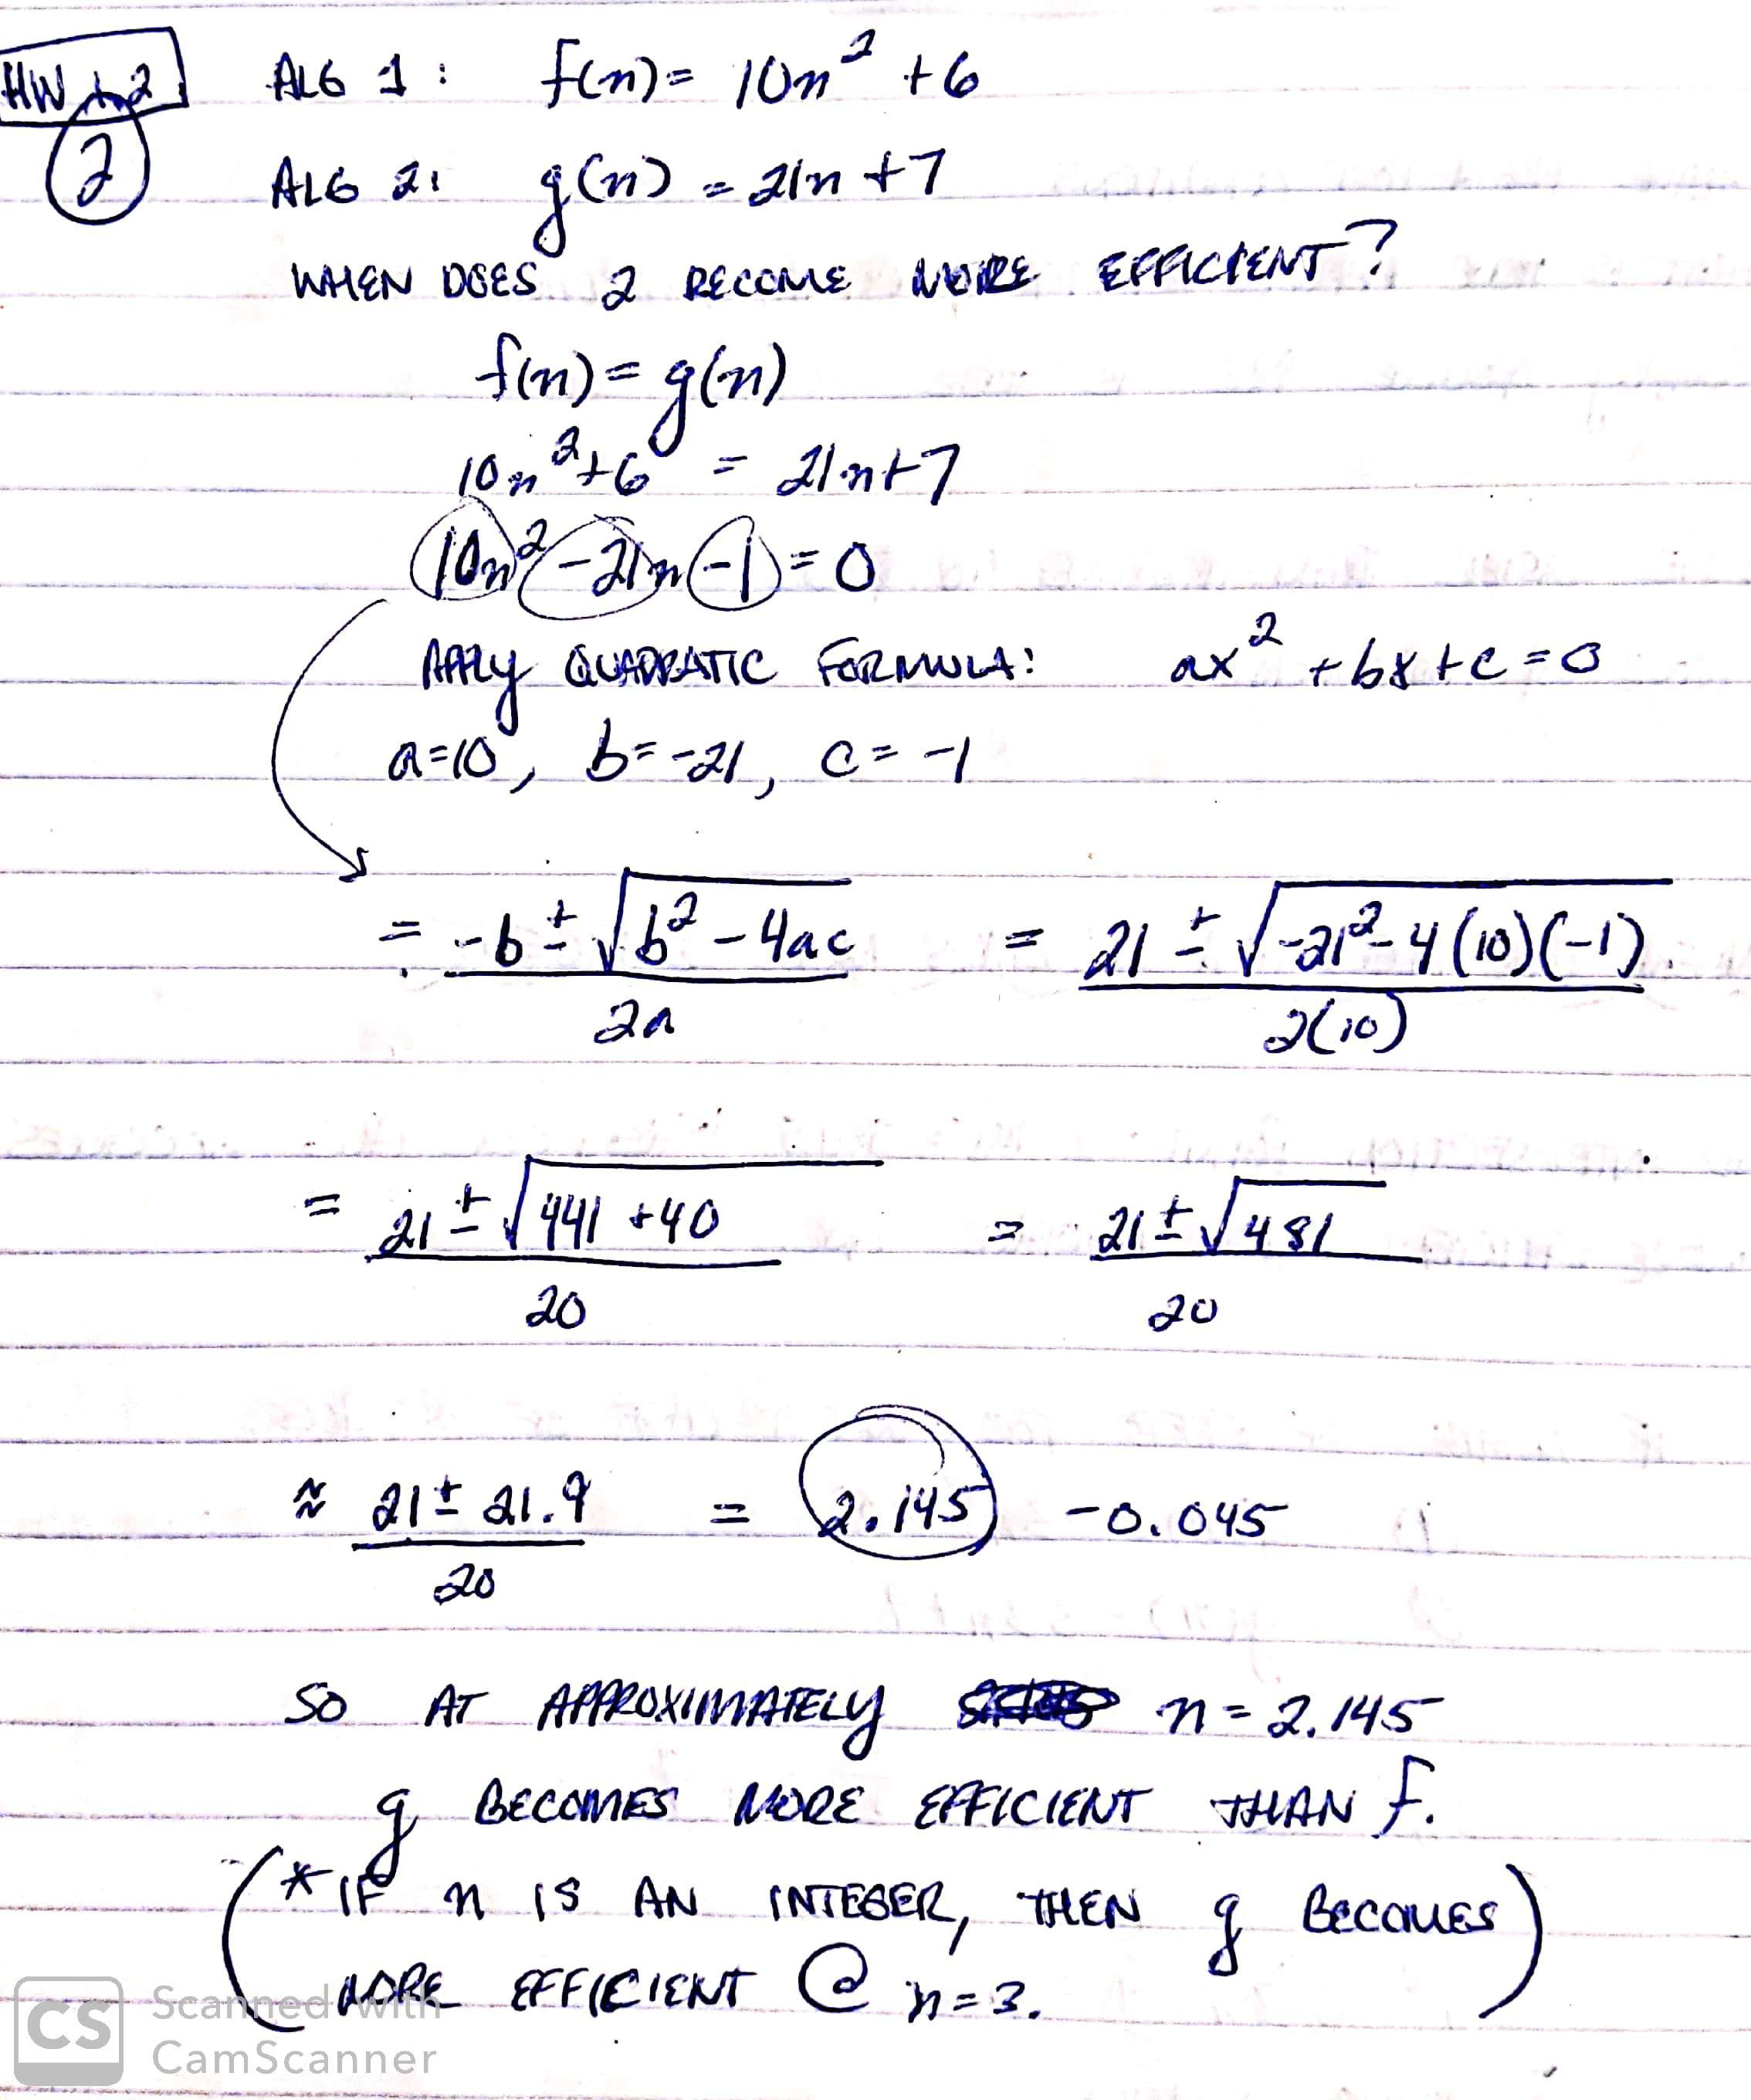 HW 2
2
ALG 1: f(n) = 10n² + 6
ALG 2: g(n) = 21n + 7
WHEN DOES 2 BECOME MORE EFFICIENT?
f(n) = g(n)
10n² + 6 = 21n + 7
10n² - 21n - 1 = 0
APPLY QUADRATIC FORMULA: ax² + bx + c = 0
a = 10, b = -21, c = -1
= (-b ± √(b² - 4ac)) / 2a = (21 ± √(-21² - 4(10)(-1))) / 2(10)
= (21 ± √(441 + 40)) / 20 = (21 ± √481) / 20
≈ (21 ± 21.9) / 20 = 2.145 -0.045
SO AT APPROXIMATELY n = 2.145
g BECOMES MORE EFFICIENT THAN f.
(* IF n IS AN INTEGER, THEN g BECOMES
MORE EFFICIENT @ n = 3.)
CS Scanned with
CamScanner